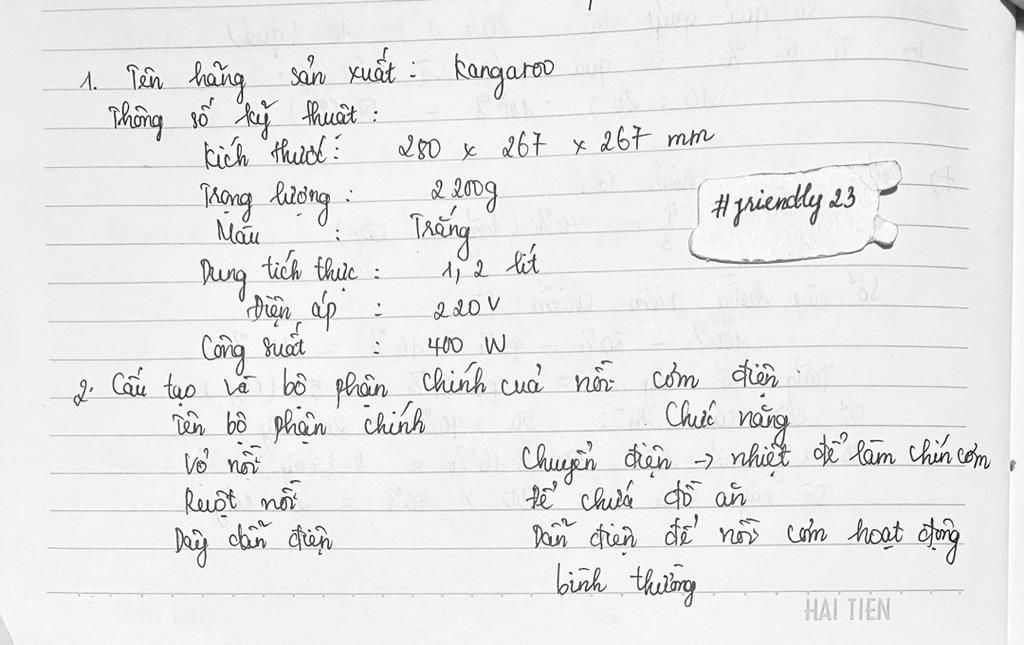 1. Tên hãng sản xuất: Kangaroo
Thông số kỹ thuật:
Kích thước: 280 x 267 x 267 mm
Trọng lượng: 2200g
#friendly23
Màu : Trắng
Dung tích thực: 1,2 lít
Điện áp : 220V
Công suất : 400 W
2. Cấu tạo và bộ phận chính cuả nồi cơm điện
Tên bộ phận chính Chức năng
Vỏ nồi Chuyển điện → nhiệt để làm chín cơm
Ruột nồi Để chứa đồ ăn
Dây dẫn điện Dẫn điện để nồi cơm hoạt động
bình thường
HAI TIEN